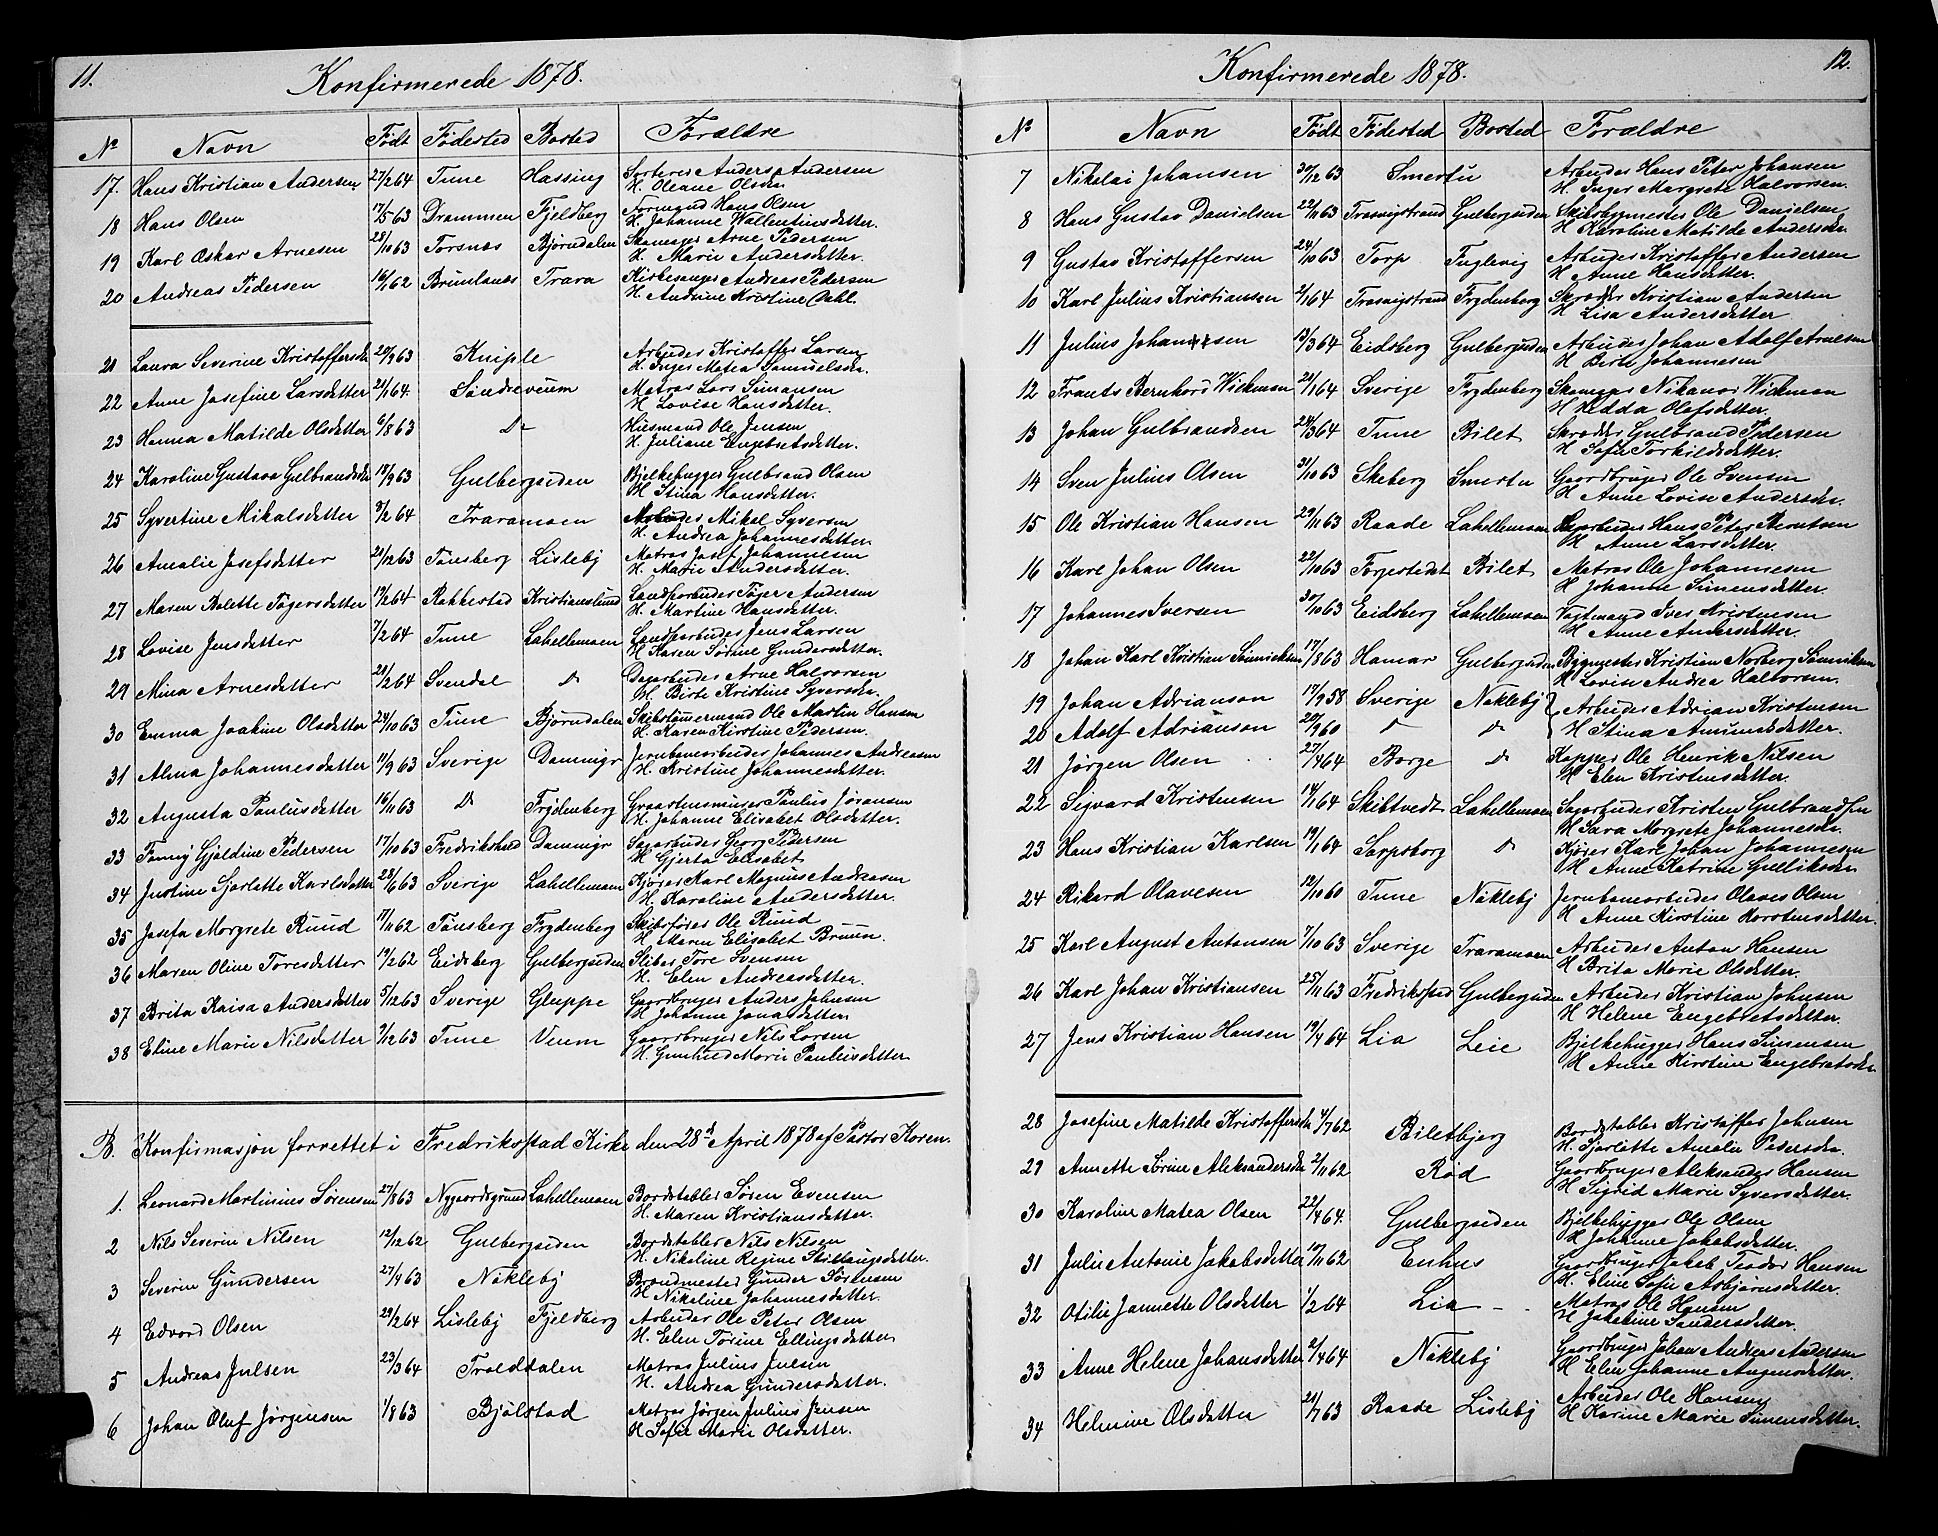 11.
Konfirmerede 1878.
No Navn Födt Födested Bosted Forældre
17. Hans Kristian Andersen 27/2 64 Tune Hassing Sorterer Anders Andersen
H. Oleane Olsdr
18 Hans Olsen 17/5 63 Drammen Fjeldberg Formand Hans Olsen
H. Johanne Wallentinusdatter.
19 Karl Oskar Arnesen 28/10 63 Torsnæs Bjørndalen Skomager Arne Pedersen
H. Marie Andersdatter.
20 Andreas Pedersen 16/1 62 Brunlanæs Trara Kirkesanger Andreas Pedersen
H. Andrine Kristine Dahl.
21 Laura Severine Kristoffersdr 29/9 63 Kniple Arbeider Kristoffer Larsen
H. Inger Matea Samuelsdr.
22 Anne Josefine Larsdatter 21/1 64. Søndreveum Matros Lars Simonsen
H Lovise Hansdatter.
23 Hanna Matilde Olsdatter 6/8 63 Do Husmand Ole Jensen
H. Juliane Engebretsdatter.
24 Karoline Gustava Gulbrandsdr 18/9 63 Gulbergsiden Bjelkehugger Gulbrand Olsen
H Stina Hansdatter.
25 Syvertine Mikalsdatter 3/2 64 Traramoen Arbeider Mikal Syversen
H. Andrea Johannesdatter.
26 Amalie Josefsdatter 21/12 63 Tønsberg Lisleby Matros Josef Johannesen
H. Marie Andersdatter.
27 Maren Bolette Tøgersdatter 17/2 64 Rakkestad Kristianslund Landparbeider Tøger Andersen
H. Martine Hansdatter.
28 Lovise Jensdatter 7/2 64 Tune Lahellemoen Landparbeider Jens Larsen
H Karen Sørine Gundersdatter.
29 Mina Arnesdatter 21/2 64 Svendal Do Dagarbeider Arne Halvorsen
H. Birte Kristine Syversdr.
30 Emma Joakine Olsdatter 24/10 63 Tune Bjørndalen Skibstømermand Ole Martin Hansen
H. Karen Kirstine Pedersen.
31 Alma Johannesdatter 11/9 63 Sverige Dammigr Jernbanearbeider Johannes Andreasen
H. Kristine Johannesdatter.
32 Augusta Paulusdatter 16/11 63 Do Frydenberg Graastensminer Paulus Jøransen
H. Johanne Elisabet Olsdatter.
33 Fanny Gjoldine Pedersen 17/10 63 Fredrikshald Dammigr Sagarbeider Georg Pedersen
H Gjerta Elisabet
34 Justine Sjarlotte Karlsdatter 23/6 63 Sverige Lahellemoen Kjører Karl Magnus Andreasen
H. Karoline Andersdatter.
35 Josefa Morgrete Ruud 11/11 62 Tønsberg Frydenberg Skibsfører Ole Ruud
H Maren Elisabet Bruun.
36 Maren Oline Toresdatter 19/2 62 Eidsberg Gulbergsiden Sliber Tore Svensen
H. Elen Andreasdatter.
37 Brita Kaisa Andersdatter 5/12 63 Sverige Gluppe Gaardbruger Anders Johnsen
H Johanne Jonasdatter
38 Eline Marie Nilsdatter 7/12 63 Tune Veum Gaardbruger Nils Larsen
H. Gunhild Marie Paulusdatter
B. Konfirmasjon forrettet i Fredriksstad Kirke den 28d April 1878 af Pastor Koren.
1. Leonard Martinius Sørensen 27/8 63 Nygaardsgrund Lahellemoen Bordstabler Søren Evensen
H. Maren Kristiansdatter.
2 Nils Severin Nilsen 12/12 62 Gulbergsiden Bordstabler Nils Nilsen
H. Nikoline Regine Stillaugsdatter.
3 Severin Gundersen 27/4 63 Nøkleby Brandmester Gunder Sørensen
H Nikoline Johannesdatter.
4 Edvard Olsen 29/2 64 Lisleby Fjeldberg Arbeider Ole Peter Olsen
H. Elen Torine Ellingsdatter
5 Andreas Julsen 23/3 64 Trolddalen Matros Julius Julsen
H. Andrea Gundersdatter.
6 Johan Oluf Jørgensen 1/8 63 Bjølstad Matros Jørgen Julius Jensen
H Sofie Marie Olsdatter.
12.
Konfirmerede 1878.
No Navn Födt Födested Bosted Forældre
7 Nikolai Johansen 30/12 63 Smertu Arbeider Hans Peter Johansen
H Inger Margrete Halvorsen.
8 Hans Gustav Danielsen 22/11 63 Trosvigstrand Gulbergsiden Skibsbygmester Ole Danielsen
H Karoline Matilde Andersdr.
9 Gustav Kristoffersen 24/10 63 Torp Fuglevig Arbeider Kristoffer Andersen
H Anne Hansdatter.
10 Karl Julius Kristiansen 2/1 64 Trosvigstrand Frydenberg Skrædder Kristian Andersen
H Lisa Andersdatter
11 Julius Johannsen 13/3 64 Eidsberg Gulbergsiden Arbeider Johan Adolf Arnesen
H Birte Johannesen
12 Frants Bernhard Wickman 21/1 64 Sverige Frydenberg Skomager Nikanor Wickman
H Hedda Olofsdatter.
13 Johan Gulbrandsen 24/3 64 Tune Bilet Skrædder Gulbrand Pedersen
H Sofie Torkildsdatter.
14 Sven Julius Olsen 31/10 63 Skeberg Smertu Gaardbruger Ole Svensen
H Anne Lovise Andersdr.
15 Ole Kristian Hansen 29/11 63 Raade Lahellemoen Sagarbeider Hans Peter Berntsen
H Anne Larsdatter.
16 Karl Johan Olsen 22/10 63 Torpestedet Bilet Matros Ole Johannesen
H Johanne Simensdatter.
17 Johannes Iversen 30/10 63 Eidsberg Lahellemoen Vogtmand Iver Kristensen
H Anne Andersdatter.
18 Johan Karl Kristian Sønnicksen 17/8 63 Hamar Gulbergsiden Bygmester Kristian Norberg Sønnicksen
H Lovise Andrea Halvorsen.
19 Johan Adrianson 17/9 58 Sverige Nøkleby Arbeider Adrian Kristensen
20 Adolf Adrianson 20/9 60 Do Do H Stina Amundsdatter.
21 Jørgen Olsen 27/4 64 Borge Do Kopper Ole Henrik Nilsen
H Elen Kristensdatter.
22 Sigvard Kristensen 14/1 64 Skiltvedt Lahellemoen Sagarbeider Kristen Gulbrandsen
H Sara Morgrete Johannesdr.
23 Hans Kristian Karlsen 19/1 64 Sarpsborg Do Kjører Karl Johan Johannesen
H Anne Katrine Gulliksdr.
24 Rikard Olavesen 12/10 60 Tune Nøkleby Jernbanearbeider Olaves Olsen
H Anne Kirstine Torstensdatter.
25 Karl August Antonsen 7/10 63 Sverige Traramoen Arbeider Anton Hansen
H Brita Marie Olsdatter.
26 Karl Johan Kristiansen 25/11 63 Fredriksstad Gulbergsiden Arbeider Kristian Johnsen
H Helene Engebretsdatter.
27 Jens Kristian Hansen 19/4 64 Lia Leie Bjelkehugger Hans Simensen
H Anne Kirstine Engebretsdr
28 Josefine Matilde Kristoffersdr 4/7 62 Biletbjerg Bordstabler Kristoffer Johnsen
H. Sjarlotte Amalie Pedersdr.
29 Annette Sørine Aleksandersdr 2/11 62 Rød Gaardbruger Aleksander Hansen
H Sigrid Marie Syversdatter.
30 Karoline Matea Olsen 22/4 64. Gulbergsiden Bjelkehugger Ole Olsen
H Johanne Jakobsdatter.
31 Julie Antonie Jakobsdatter 10/11 62 Enhus Gaardbruger Jakob Teodor Hansen
H. Eline Sofie Asbjørnsdatter.
32 Otilie Jannette Olsdatter 1/2 64 Lia Matros Ole Hansen
H Jakobine Sandersdatter.
33 Anne Helene Johansdatter 2/4 64 Nøkleby Gaardbruger Johan Andreas Andersen
H Elen Johanne Augensdatter.
34 Helmine Olsdatter 21/7 63 Raade Lisleby Arbeider Ole Hansen
H Karine Marie Simensdatter.